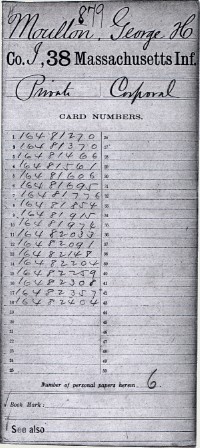 879
Moullon, George H
Co. I, 38 Massachusetts Inf.
Private Corporal
CARD NUMBERS.
1 16481270 26
2 16481370 27
3 16481466 28
4 16481561 29
5 16481606 30
6 16481695 31
7 16481776 32
8 16481854 33
9 16481915 34
10 16481974 35
11 16482033 36
12 16482091 37
13 16482148 38
14 16482204 39
15 16482259 40
16 16482308 41
17 16482357 42
18 16482404 43
19 44
20 45
21 46
22 47
23 48
24 49
25 50
Number of personal papers herein 6.
Book Mark:
See also